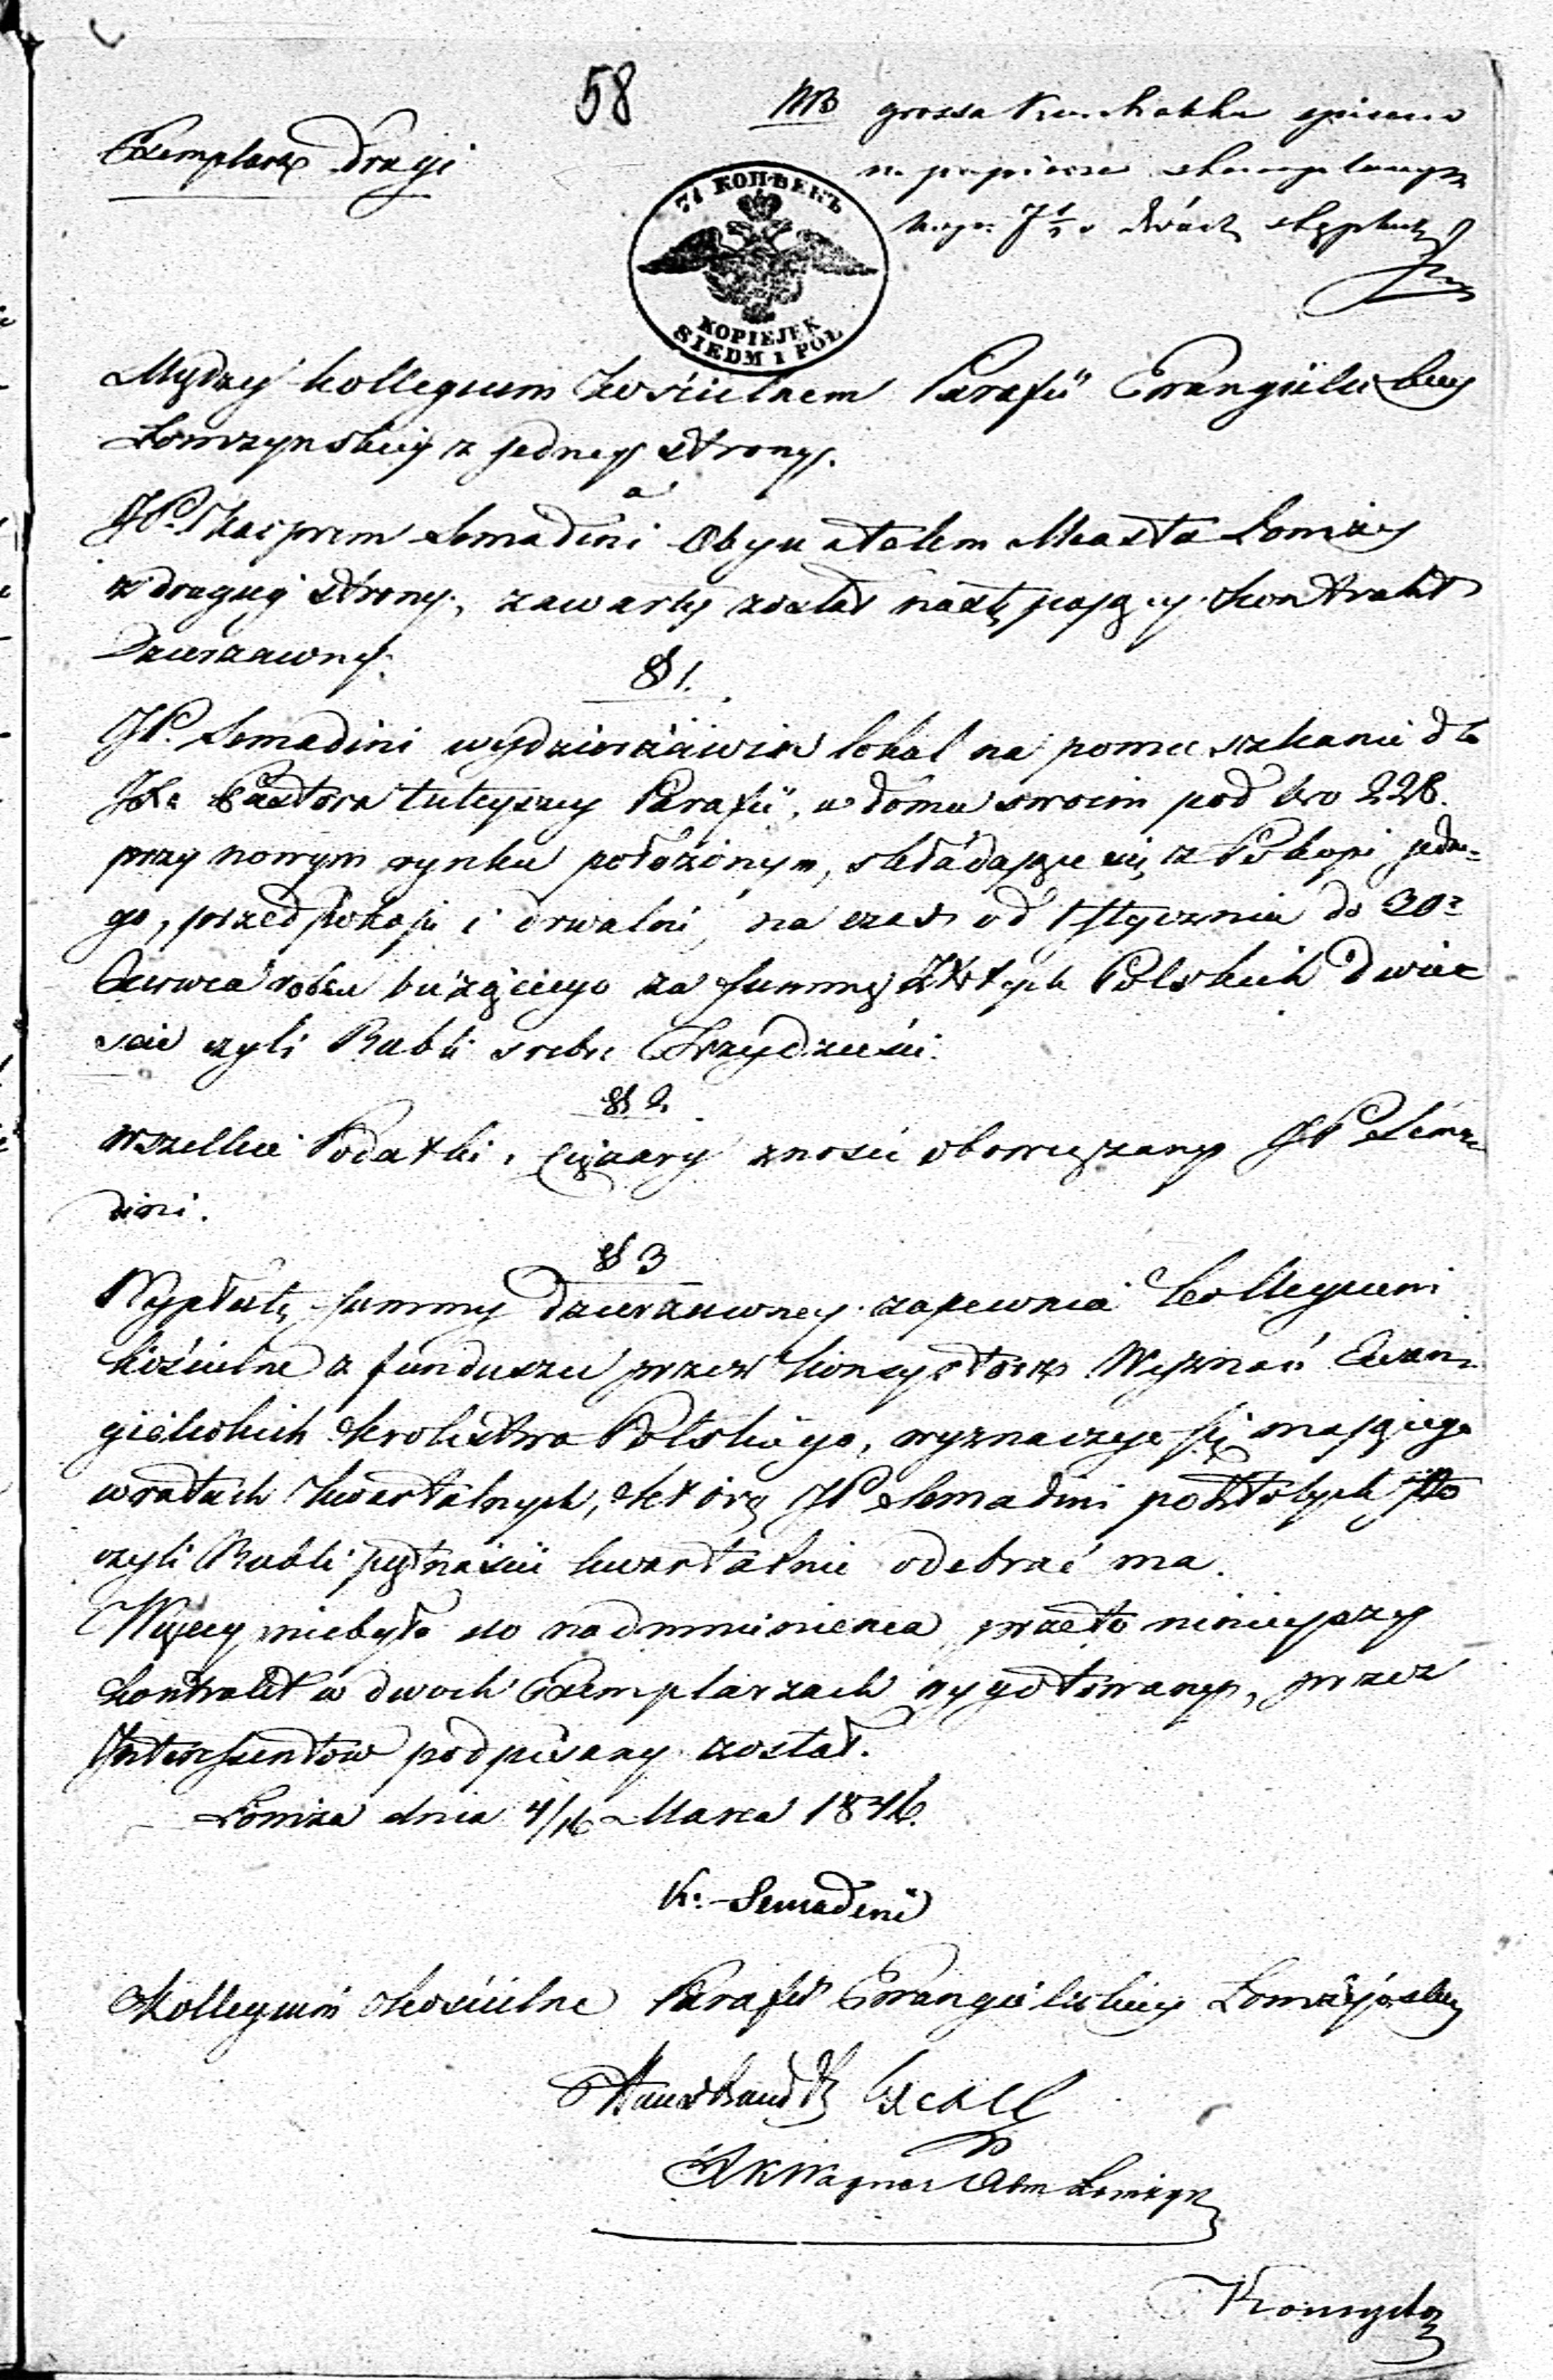 58
Exemplarz Drugi
NB
na papierze stemplowym
kop. 7½ w dwóch
7½ КОПѢЕКЪ
KOPIEJEK
SIEDM I POŁ
Między Kollegium Kościelnem Parafii Ewangielickiey
Łomżynskiey z jedney strony.
a
JP. Kasprem Semadini Obywatelem Miasta Łomży
z drugiey strony, zawarty został następujący Kontrakt
Dzierzawny.
§ 1.
JP. Semadini wydzierżawia lokal na pomieszkanie dla
Pastora tuteyszey Parafii, w domu swoim pod Nro 228.
przy nowym rynku położonym, składające się z Pokoju jedne=
go, przedpokoju i drwalni, na czas od 1 Stycznia do 30º
Czerwca roku bieżącego za summę Złotych Polskich Dwie
scie czyli Rubli srebr Trzydzieści.
§ 2.
Wszelkie Podatki i Ciężary znosić obowiązany JP Sema=
dini.
§ 3
Wypłatę summy dzierzawney zapewnia Kollegium
Kościelne z funduszu przez Konsystorz Wyznań Ewan=
gielickich Krolestwa Polskiego, wyznaczyć się maiącego
w ratach kwartalnych, którą JP Semadini po Złotych Sto
czyli Rubli piętnaście kwartalnie odebrać ma.
Więcey niebyło do nadmienienia przeto ninieyszy
Kontrakt w dwoch Exemplarzach wygotowany, przez
Interessentow podpisany został.
Łomża dnia 4/16 Marca 1846.
K. Semadeni
Kollegium Kościelne Parafii Ewangielickiey Łomżyńskiey
Wagner